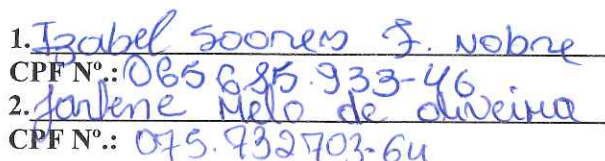 1. Izabel Soares F. Nobre
CPF Nº.: 065 685.933-46
2. Jarlene Melo de oliveira
CPF Nº.: 075.932703-64